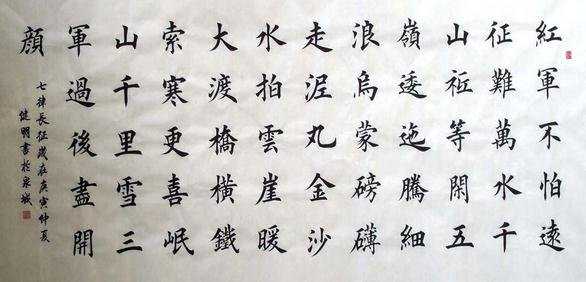 紅軍不怕遠
征難萬水千
山祗等閑五
嶺逶迤騰細
浪烏蒙磅礴
走泥丸金沙
水拍雲崖暖
大渡橋橫鐵
索寒更喜岷
山千里雪三
軍過後盡開
顏
七律長征歲在庚寅仲夏
健明書於泉城